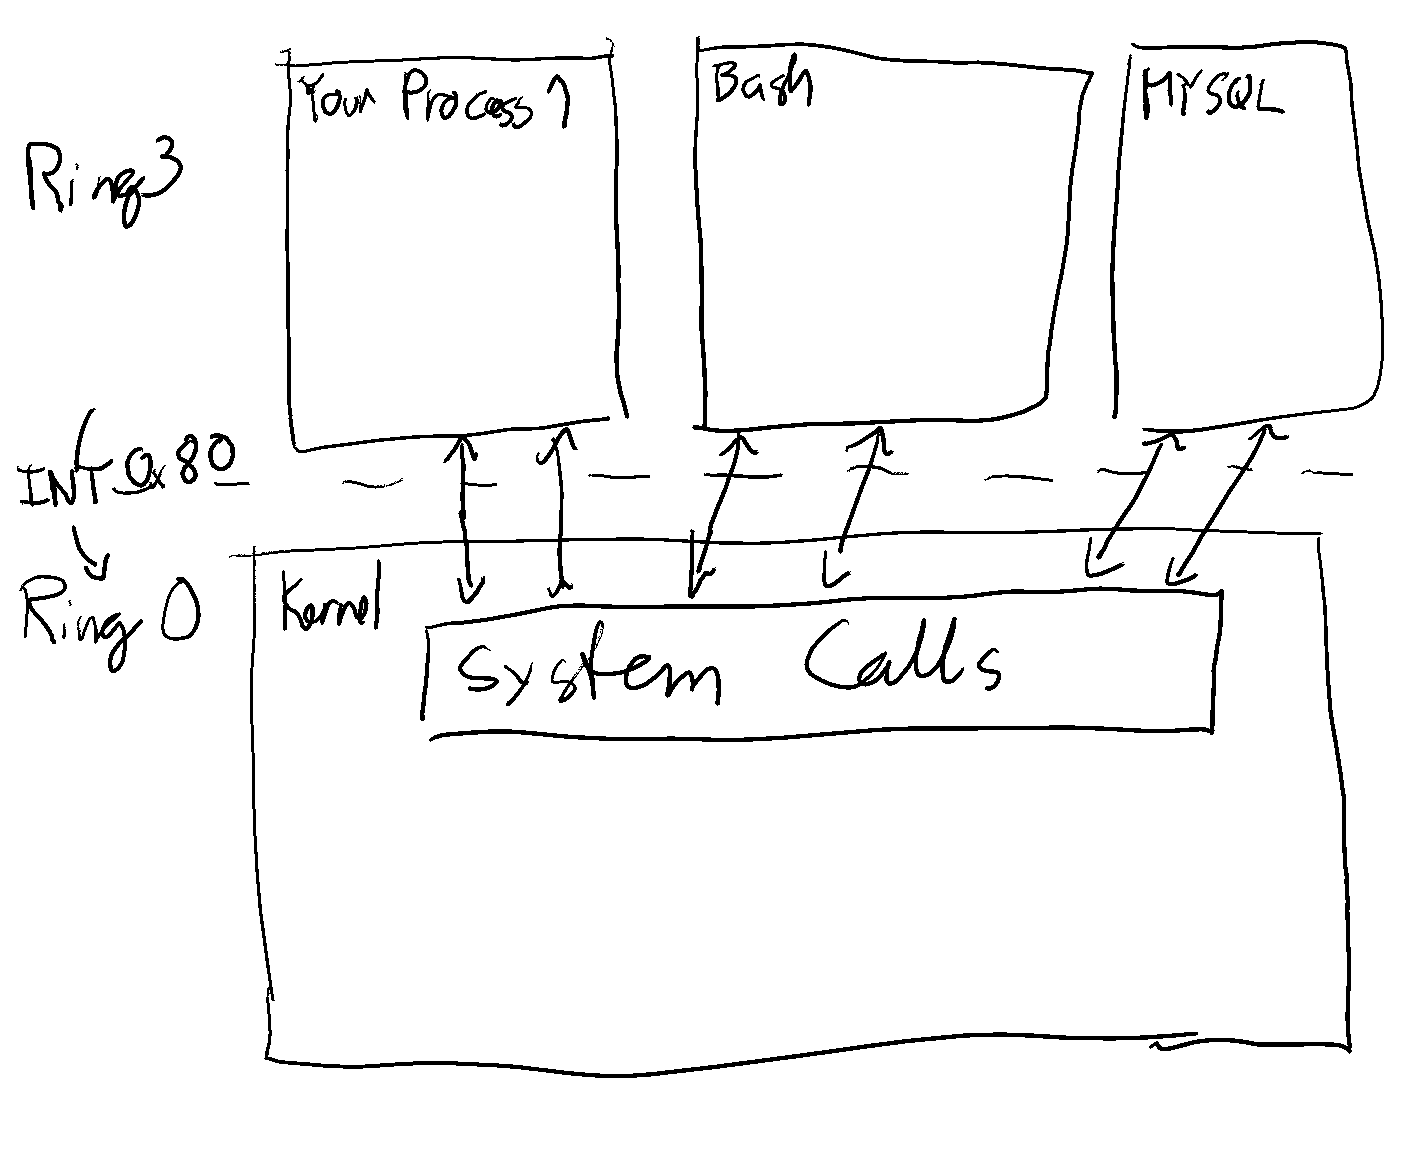 Your Process 1
Bash
MYSQL
Ring 3
INT 0x80
Ring 0
Kernel
System Calls